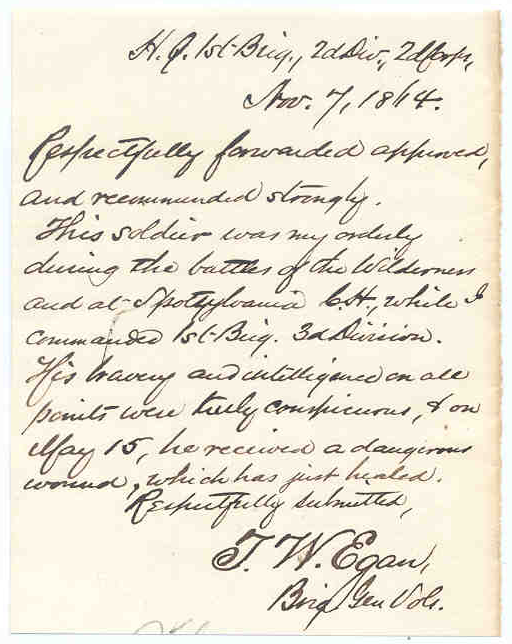 H. Q. 1st Brig., 2d Div., 2d Corps,
Nov. 7, 1864.
Respectfully forwarded approved,
and recommended strongly.
This soldier was my orderly
during the battles of the Wilderness
and at Spotsylvania C.H., while I
commanded 1st Brig. 3d Division.
His bravery and intelligence on all
points were truly conspicuous, & on
May 15, he received a dangerous
wound, which has just healed.
Respectfully submitted,
T. W. Egan,
Brig Gen Vols.